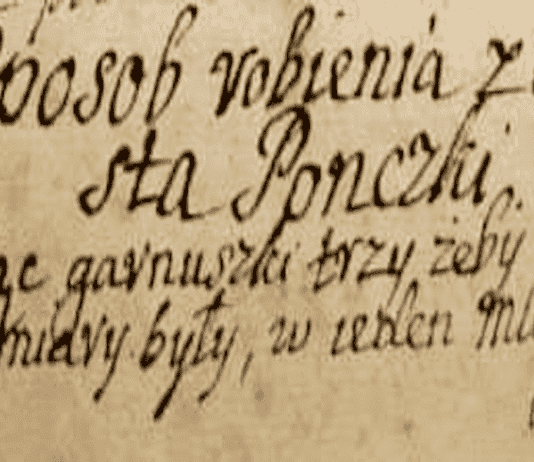 posob robienia z
sta Ponczki
garnuszki trzy żeby
miary były, w ieden